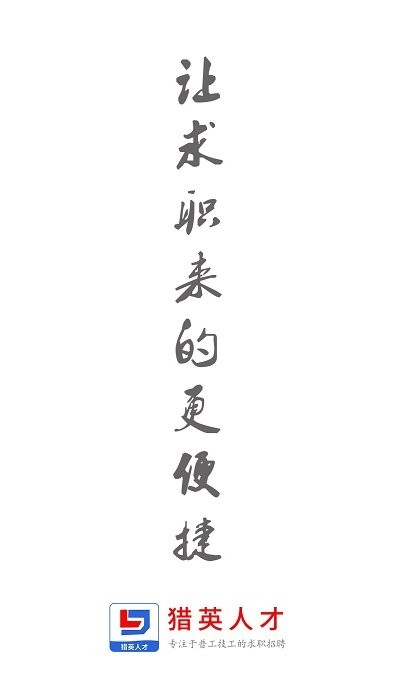 让求职来的更便捷
猎英人才
猎英人才
专注于普工技工的求职招聘